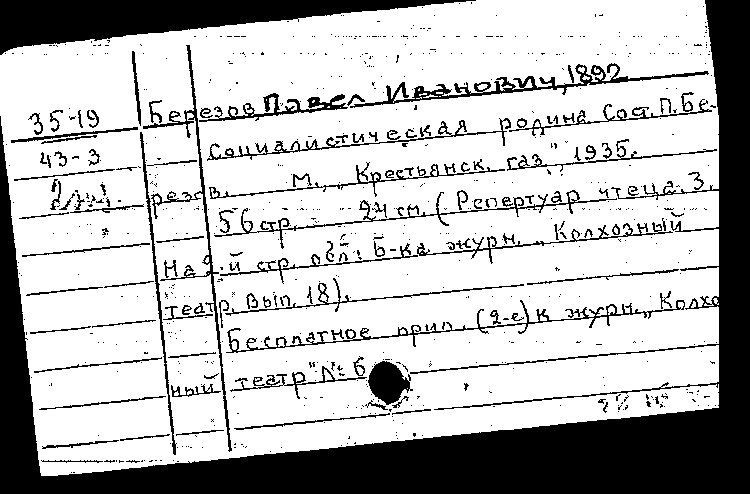 35-19
Березов, Павел Иванович, 1892
43-3
Социалистическая родина. Сост. П. Бе-
2 экз.
резов. М., „Крестьянск. газ.", 1935.
56 стр. 24 см. (Репертуар чтеца. 3.
На 2-й стр. обл: Б-ка журн. „Колхозный
театр. Вып. 18).
Бесплатное прил. (2-е) к журн. „Колхо
ный театр" № 6